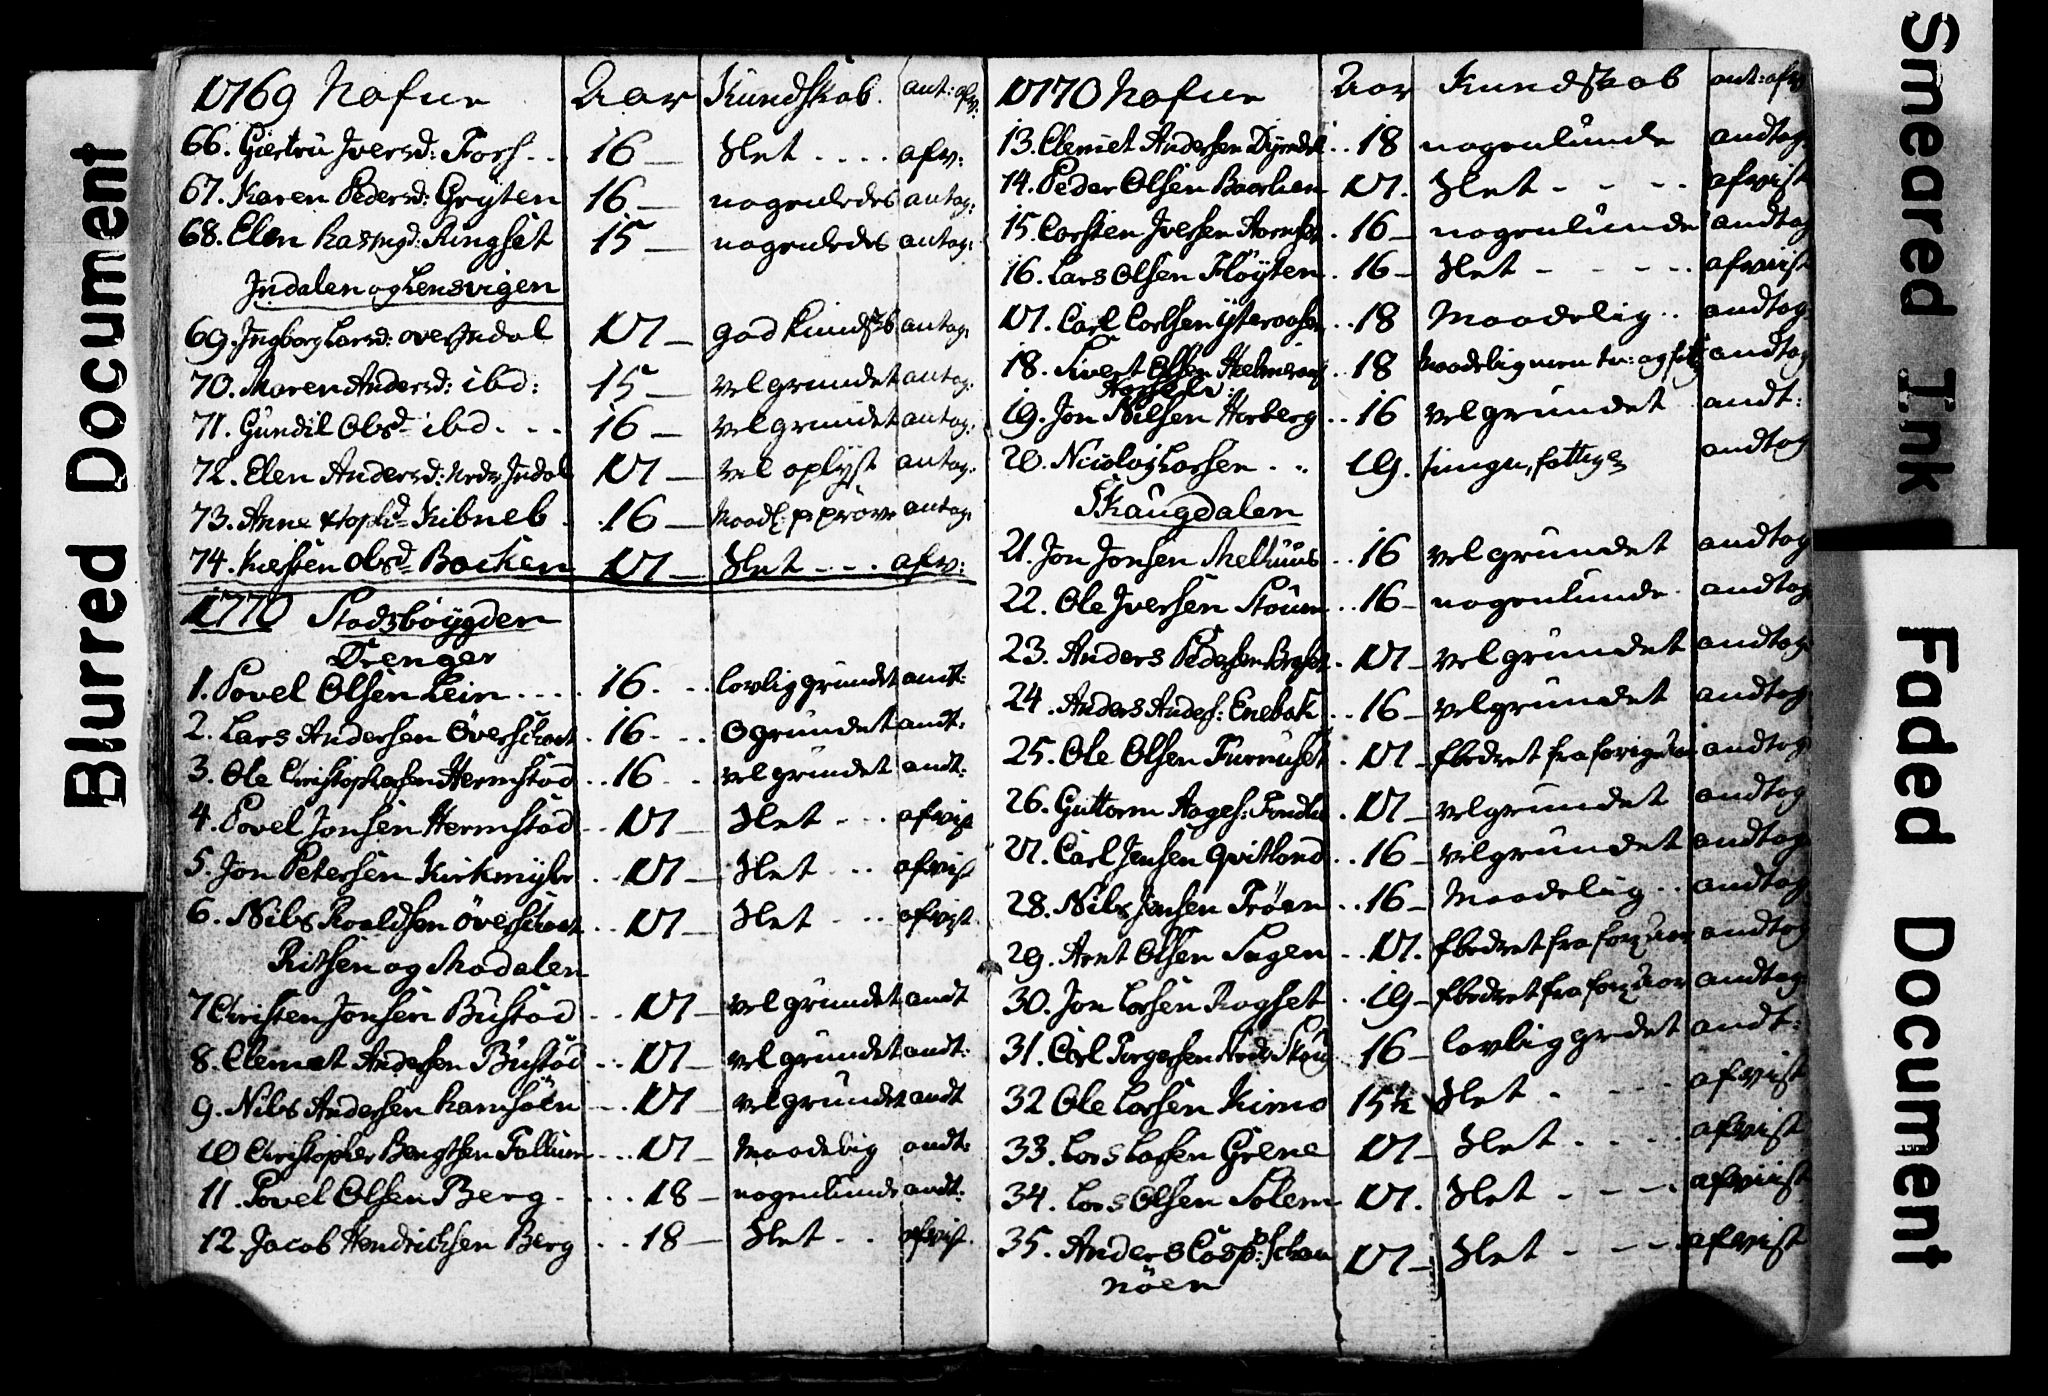 Blurred Document
1769 Nafne Aar Kundskab. ant: afv:
66. Giertru Iversd: Fors .. 16 — slet .... afv:
67. Karen Pedersd: Gryten 16 — nogenledes antag:
68. Elen Rasmsd: Ringset 15 — nogenledes antag:
Indalen og Lensvigen
69. Ingborg Larsd: over Indal 17 — god kundskb antag:
70. Maren Andersd: ibd: 15 — vel grundet antag:
71. Gundil Olsd ibd ... 16 — vel grundet antag:
72. Elen Andersd: Nedr Indal 17 — vel oplyst antag:
73. Anne Xstophd Kibneb . 16 — Maadl: antag:
74. Kiesten Olsd Backen 17 — slet ... afv:
1770 Stadsbøygden
Drenger
1. Povel Olsen Lein .... 16. .. lovlig grundet andt:
2. Lars Andersen Øverschoet . 16. .. grundet andt:
3. Ole Christophersen Hermstad .. 16 .. vel grundet andt:
4. Povel Jonsen Hermstad .. 17 — slet ... afvist
5. Jon Petersen Kirkmyhr .. 17 — slet ... afvist
6. Nils Roaldsen Øverschoet .. 17 — slet ... afvist
Ritsen og Modalen
7 Christen Jonsen Bustad .. 17 — vel grundet andt
8. Clemet Andersen Bustad .. 17 — vel grundet andt:
9. Nils Andersen Ramsøen ... 17 — vel grundet andt
10 Christopher Bengtsen Fallium ... 17 — Maadelig andt:
11. Povel Olsen Berg .... 18 — nogenlunde andt:
12. Jacob Hendrichsen Berg .. 18 — slet .. afvist.
1770 Nafne Aar Kundskab ant: afv
13. Clemet Andersen Dyrndal .. 18 nogenlunde andtog
14. Peder Olsen Baarlien 17. slet - - - - afvist
15. Carsten Iversen . 16 — nogenlunde andtog
16. Lars Olsen Fløyten . 16 — slet - - - - afviist
17. Carl Carlsen Yteraasen .. 18 Maadelig .. andtog
18. Sivert Olsen .. 18 Maadelig men andtog
19. Jon Nilsen Harberg .. 16 vel grundet andt:
20. Nicolai Larsen .. 19. andtog
Skaugdalen
21. Jon Jonsen Melhuus .. 16 vel grundet andtog
22. Ole Iversen Støuen .. 16 — nogenlunde andtog
23. Anders Pedersen . 17 — vel grundet andtog
24. Anders Anders: Enebak .. 16 — vel grundet andtog
25. Ole Olsen Furruset . 17 — fbedret fra forige aar andtog
26. Guttorm Aages: Fondlie . 17 — vel grundet andtog
27. Carl Jensen Qvitland .. 16 — vel grundet andtog
28. Nils Jensen Trøen .. 16 — Maadelig .. andtog
29. Arnt Olsen Sagen .. 17. fbedret fra for: aar andtog
30. Jon Larsen Rogset .. 19 — fbedret fra for: aar andtog
31. Carl Torgersen Nedr Skaug 16 — lovlig grdet andt:
32 Ole Larsen Kimo 15½ slet . - - - afvist
33. Lars Larsen Grene 17 — slet - - - - afvist
34. Lars Olsen Solem 17. slet - - - - afviist
35. Anders Casp: Schou 17 — slet - - - afvist
nøen
Smeared Ink
Faded Document